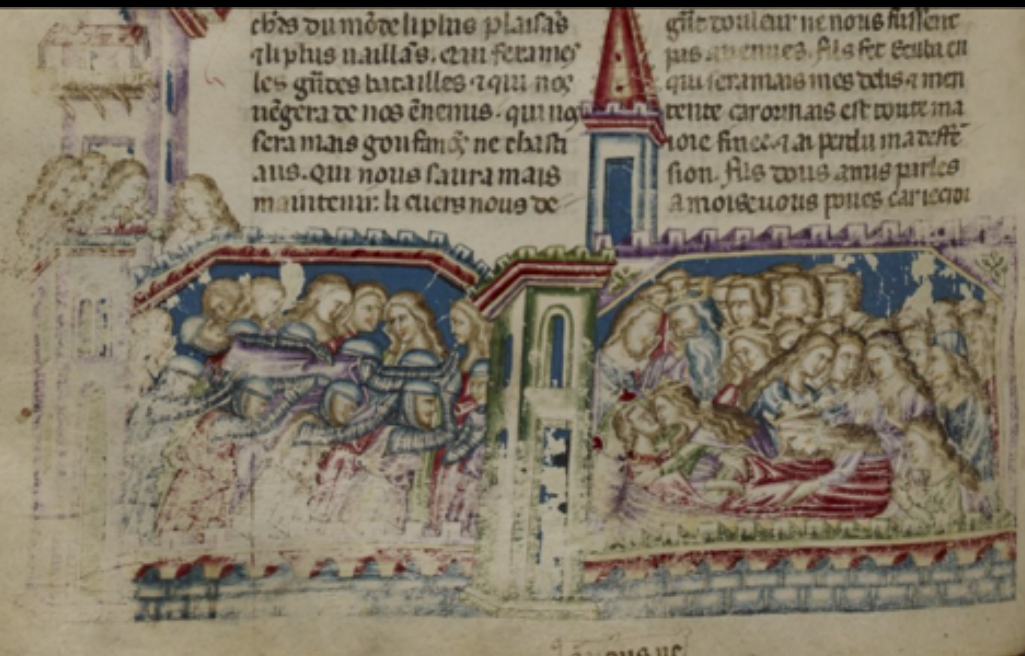 ch͛rs du mõde li plus plaisãs
⁊ li plus uaillãs. qui fera mes
les gñdes batailles ⁊ qui nos
uẽgera de nos ẽnemis. qui nos
fera mais gonfanõs ne chasti
aus. Qui nous saura mais
maintenir. li cuers nous de
douleur ne nous fussent
pas auenues. fils fet Ecuba en
qui serai mais mes delis ⁊ men
tente car ormais est toute ma
ioie finee. ⁊ ai perdu ma deffē
sion. fils dous amis parles
A moi se uous poues car ie